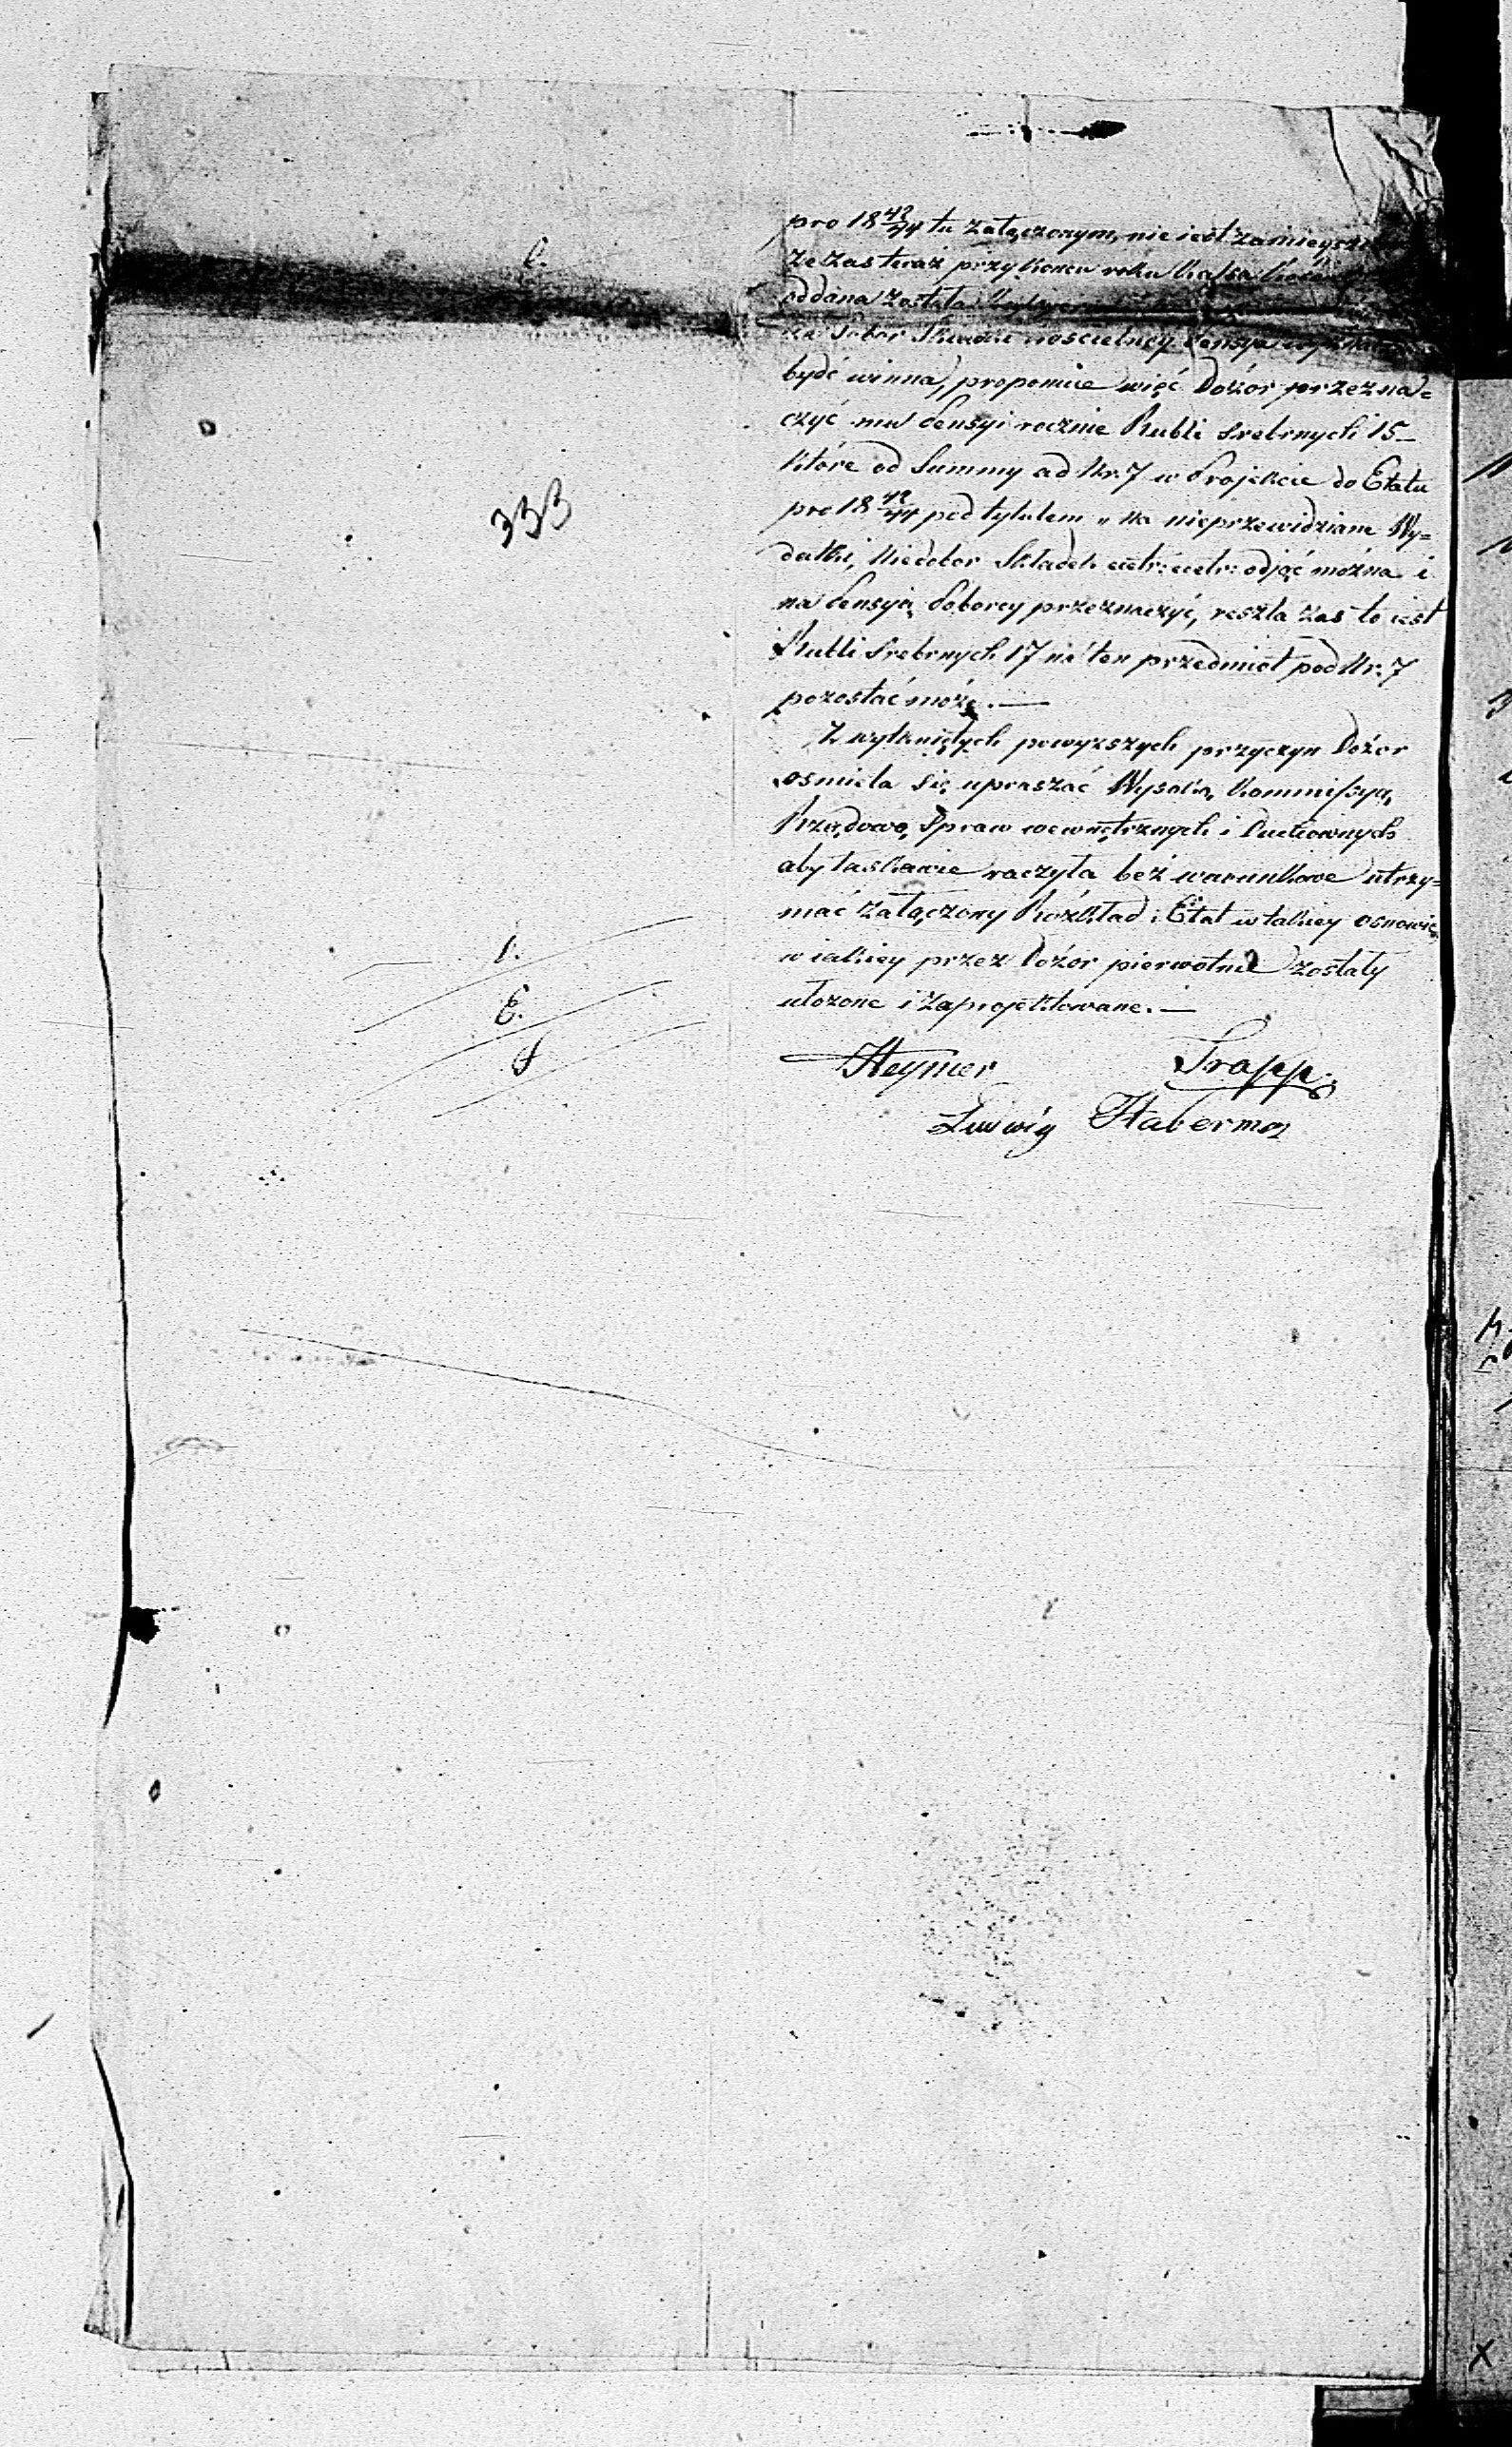 pro 18 42/44 tu załączonym, nie iest zamieysz
że zas teraz przy koncu roku Kassa
oddana została
za Pobor Składki koscielney Pensya
być winna, proponuie więć Dozór przezna=
czyć mu Pensyi rocznie Rubli srebrnych 15 –
które od Summy ad Nr. 7 w Projekcie do Etatu
pro 18 42/44 pod tytułem „ na nieprzewidziane Wy=
datki, Niedobor Składek cetr: cetr: odjąć można i
na Pensyą Poborcy przeznaczyć, reszta zas to iest
Rubli srebrnych 17 na ten przedmiot pod Nr. 7
pozostać może. —
Z wytkniętych powyzszych przyczyn Dozór
osmiela się upraszać Wysoką Kommissyą
Rządową Spraw wewnętrznych i Duchownych
aby łaskawie raczyła bez warunkowe utrzy=
mać załączony Rozkład i Etat w takiey osnowie
w iakiey przez Dozór pierwotnie zostały
ułozone i zaprojektowane. —
Heymer Trapp.
Ludwig Haberman
333